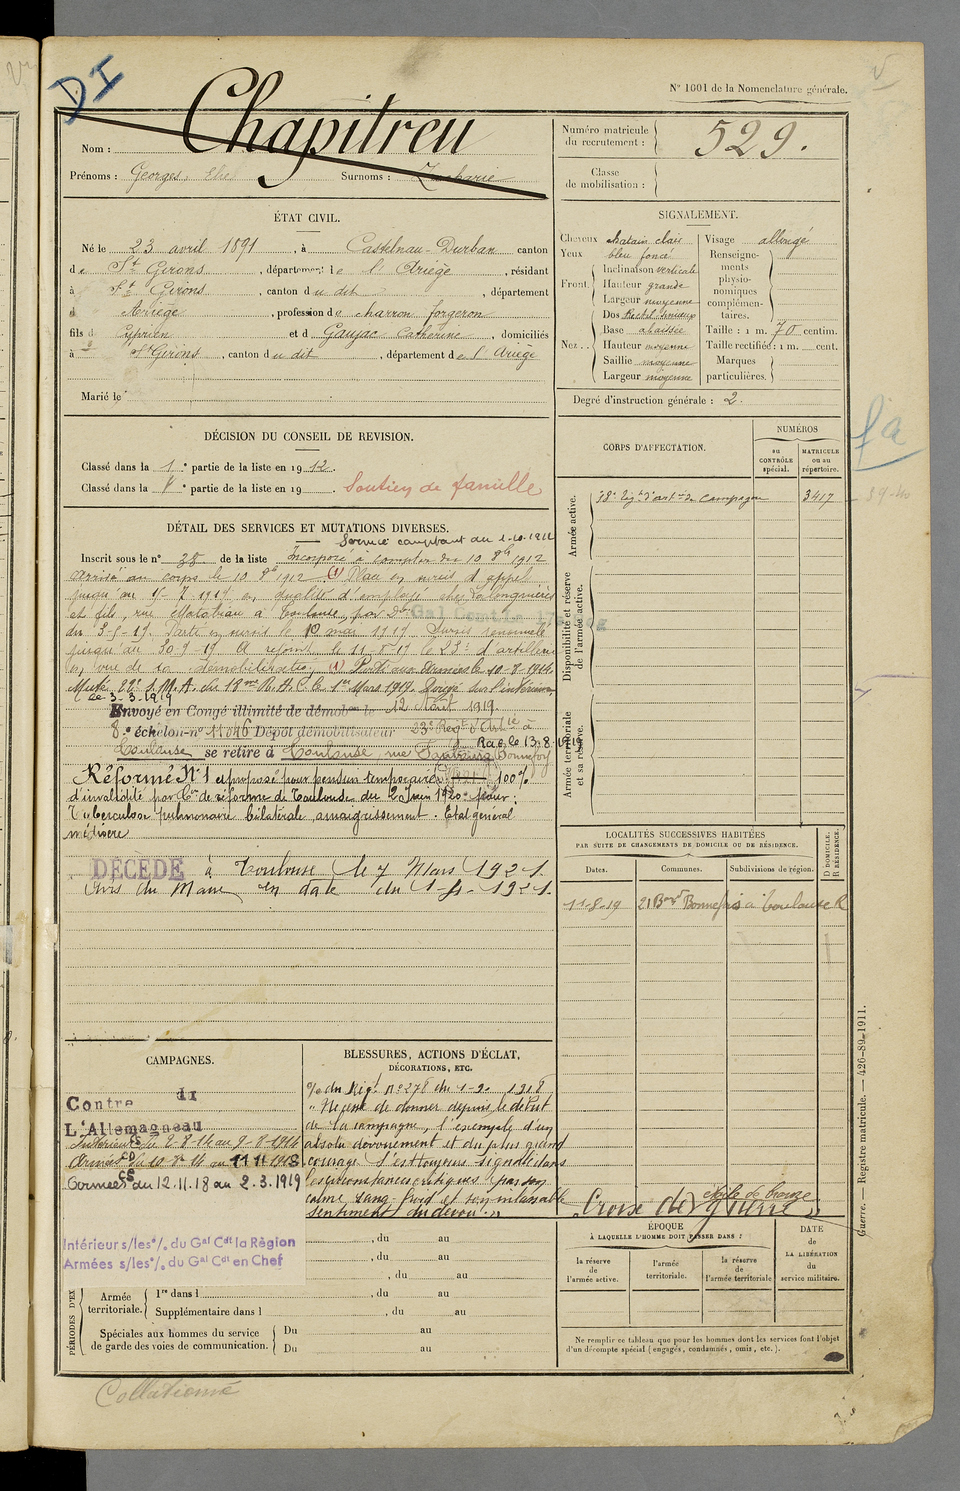 DI
N° 1001 de la Nomenclature générale.
Nom : Chapitreu
Prénoms : Georges, Elie Surnoms : Zacharie
Numéro matricule du recrutement : 529.
Classe de mobilisation :
ÉTAT CIVIL.
Né le 23 avril 1891, à Castelnau-Durban canton
de St Girons, département de l'Ariège, résidant
à St Girons, canton du dit, département
d Ariège, profession de charron forgeron
fils de Cyprien et d Gaujac Catherine, domiciliés
à St Girons, canton du dit, département de l'Ariège
Marié le
SIGNALEMENT.
Cheveux chatain clair
Yeux bleu foncé
Front. Inclinaison verticale
Hauteur grande
Largeur moyenne
Nez . . Dos Rectel. sinueux
Base abaissée
Hauteur moyenne
Saillie moyenne
Largeur moyenne
Visage allongé
Renseignements physionomiques complémentaires.
Taille : 1 m. 70 centim.
Taille rectifiée : 1 m. cent.
Marques particulières.
Degré d'instruction générale : 2.
DÉCISION DU CONSEIL DE REVISION.
Classé dans la 1e partie de la liste en 1912.
Classé dans la e partie de la liste en 19 . Soutien de famille
DÉTAIL DES SERVICES ET MUTATIONS DIVERSES.
Service comptant du 1-10-1912
Inscrit sous le n° 38 de la liste Incorporé à compter du 10 8bre 1912
arrivé au corps le 10 8bre 1912 (1) Placé en sursis d'appel
jusqu'au 15-7-1919 en qualité d'employé chez
et fils, rue Matabiau à Toulouse, par Don Gal Comt la 17e
du 3-5-19. Parti en sursis le 10 mai 1919 Sursis renouvelé
jusqu'au 30-9-19 A rejoint le 11-8-19 le 23e d'artillerie
en vue de sa démobilisation; (1) Parti aux Armées le 10-8-1914.
Muté 22e S.M.A. du 18me R.A.C. le 1er Mars 1917. Dirigé sur l'intérieur
le 3-3-1919
Envoyé en Congé illimité de démob le 12 Août 1919
8e échelon n° 11046 Dépôt démobilisateur 23e Regt d'Artie à
Toulouse se retire à Toulouse, rue Faubourg Bonnefoy
Rac le 13-8-1919
Réformé N° 1 et proposé pour pension temporaire 100%
d'invalidité par Con de réforme de Toulouse du 2 Juin 1920 pour :
Tuberculose pulmonaire bilatérale, amaigrissement. Etat général
médiocre
DÉCÉDÉ à Toulouse le 7 Mars 1921.
Avis du Maire en date du 1-4-1921.
CORPS D'AFFECTATION.
NUMÉROS
au CONTRÔLE spécial.
MATRICULE ou au répertoire.
Armée active.
18e Régt d'artie de campagne 3417
Disponibilité et réserve de l'armée active.
Armée territoriale et sa réserve.
LOCALITÉS SUCCESSIVES HABITÉES
PAR SUITE DE CHANGEMENTS DE DOMICILE OU DE RÉSIDENCE.
Dates. Communes. Subdivisions de région. D DOMICILE. R RÉSIDENCE.
11-8-19 21 Bonnefois à Toulouse R
CAMPAGNES.
Contre
L'Allemagne
Intérieur CS du 2-8-14 au 9-8-1914
Armées CD du 10-8-14 au 11 11 1918.
Armées CS du 12.11.18 au 2.3.1919
Intérieur s/les o/. du Gal Cdt la Région
Armées s/les o/. du Gal Cdt en Chef
BLESSURES, ACTIONS D'ÉCLAT,
DÉCORATIONS, ETC.
O/ du Rég. N° 278 du 1-9- 1918
"N'a cessé de donner depuis le début
de la campagne, l'exemple d'un
absolu dévouement et du plus grand
courage. S'est toujours signalé dans
les circonstances critiques par son
calme, sang-froid et son inlassable
sentiment du devoir."
Croix de guerre étoile de bronze
, du au
, du au
, du au
PÉRIODES D'EX
Armée territoriale.
1re dans l , du au
Supplémentaire dans l , du au
Spéciales aux hommes du service de garde des voies de communication.
Du au
Du au
ÉPOQUE
À LAQUELLE L'HOMME DOIT PASSER DANS :
la réserve de l'armée active.
l'armée territoriale.
la réserve de l'armée territoriale
DATE DE LA LIBÉRATION du service militaire.
Ne remplir ce tableau que pour les hommes dont les services font l'objet
d'un décompte spécial (engagés, condamnés, omis, etc.).
Guerre. — Registre matricule. — 426-89-1911.
Collationné